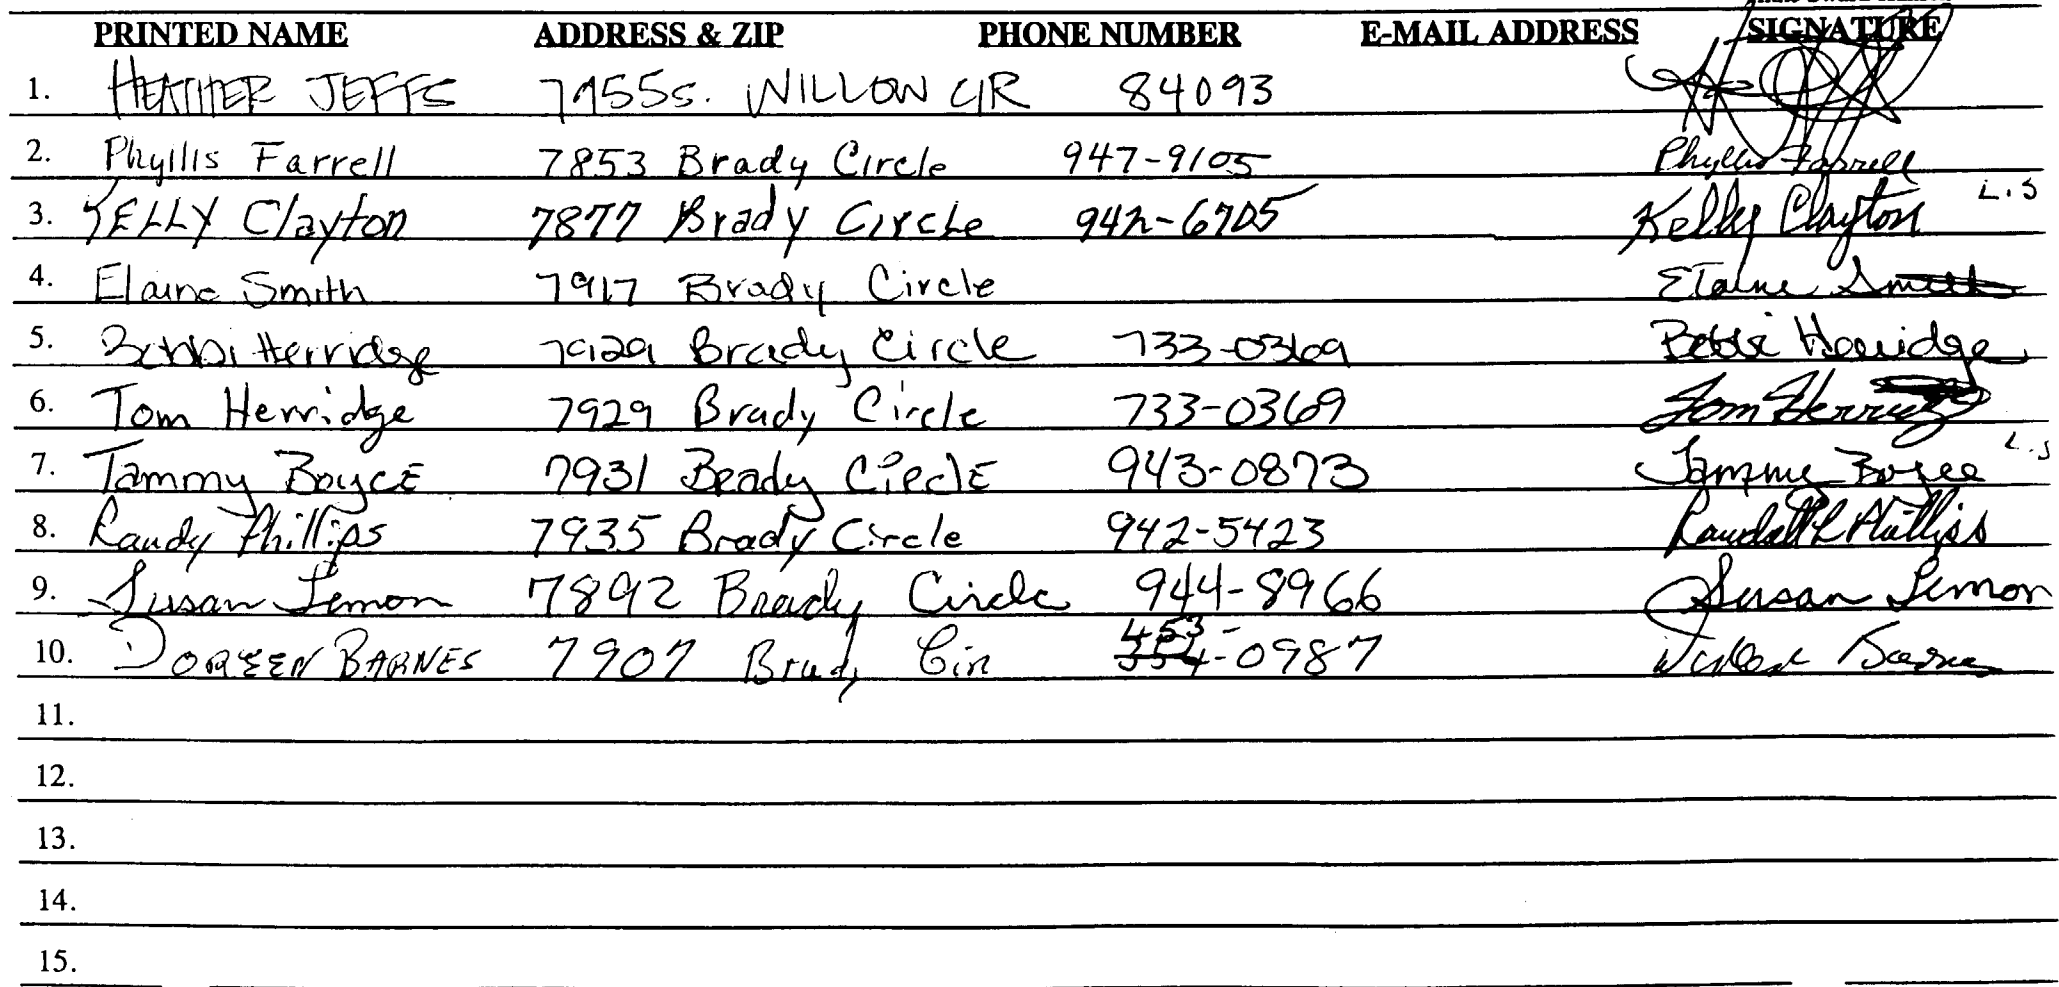 PRINTED NAME ADDRESS & ZIP PHONE NUMBER E-MAIL ADDRESS SIGNATURE
1. HEATHER JEFFS 7955 S. WILLOW CIR 84093
2. Phyllis Farrell 7853 Brady Circle 947-9105 Phyllis Farrell
3. KELLY Clayton 7877 Brady Circle 942-6705 Kelly Clayton L.S
4. Elaine Smith 7917 Brady Circle Elaine Smith
5. Bobbi Herridge 7929 Brady Circle 733-0369 Bobbi Herridge
6. Tom Herridge 7929 Brady Circle 733-0369 Tom Herridge
7. Tammy BoycE 7931 Brady CirclE 943-0873 Tammy Boyce L.S
8. Randy Phillips 7935 Brady Circle 942-5423 Randall L Phillips
9. Susan Lemon 7892 Brady Circle 944-8966 Susan Lemon
10. DOREEN BARNES 7907 Brady Cir 453-0987 Doreen Barnes
11.
12.
13.
14.
15.